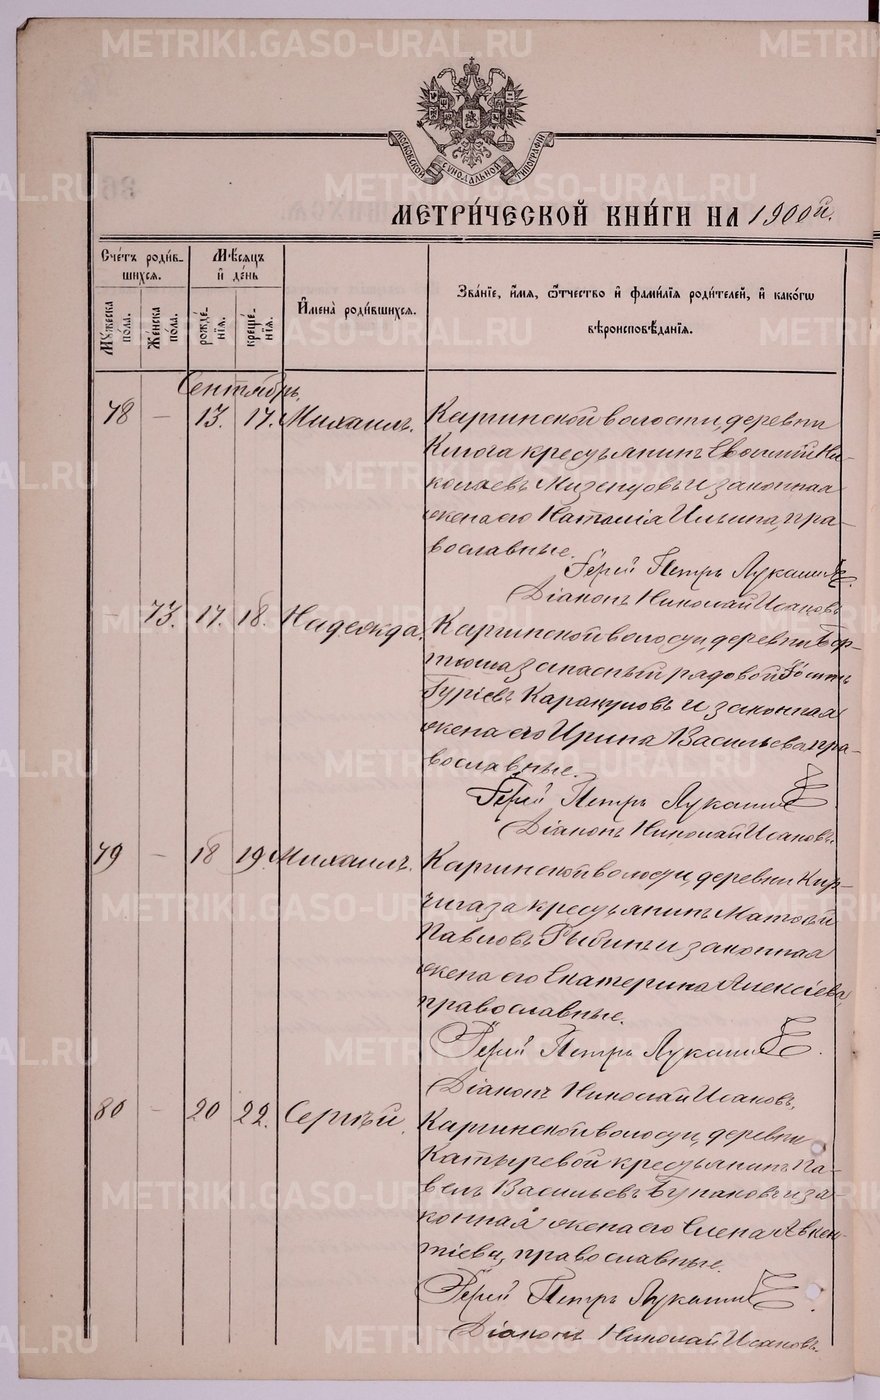 METRIKI.GASO-URAL.RU
МОСКОВСКОЙ СѴНОДАЛЬНОЙ ТИПОГРАФІИ
МЕТРИ́ЧЕСКОЙ КНИ́ГИ НА 1900й.
Сче́тъ роди́в-
шихся.
Мꙋ́жеска по́ла.
Же́нска по́ла.
Мѣ́сяцъ
и҆ де́нь
рожде́-
нїѧ.
креще́-
нїѧ.
И҆мена̀ роди́вшихся.
Зва́нїе, и҆́мѧ, ѻ҆́тчество и҆ фами́лїѧ роди́телей, и҆ како́гѡ
вѣроисповѣ́данїѧ.
Сентябрь.
78 — 13. 17. Михаилъ.
Каргинской волости, деревни
крестьянинъ Евѳимій Ни-
колаевъ Мизенцовъ и законная
жена его Наталія Ильина, пра-
вославные.
Іерей Петръ Лукашинъ
Діаконъ Николай Исаковъ
— 73. 17. 18. Надежда.
Каргинской волости, деревни Бор-
запасный рядовой
Гуріевъ Каракуловъ и законная
жена его Ирина Васильева, пра-
вославные.
Іерей Петръ Лукашинъ
Діаконъ Николай Исаковъ.
79 — 18 19. Михаилъ.
Каргинской волости, деревни Кур-
крестьянинъ Матѳей
Павловъ Рыбинъ и законная
жена его Екатерина Алексіева,
православные.
Іерей Петръ Лукашинъ.
Діаконъ Николай Исаковъ.
80 — 20 22. Сергѣй.
Каргинской волости, деревни
Катыревой крестьянинъ Па-
велъ Васильевъ и за-
конная жена его Елена Авкен-
тіева, православные.
Іерей Петръ Лукашинъ
Діаконъ Николай Исаковъ.